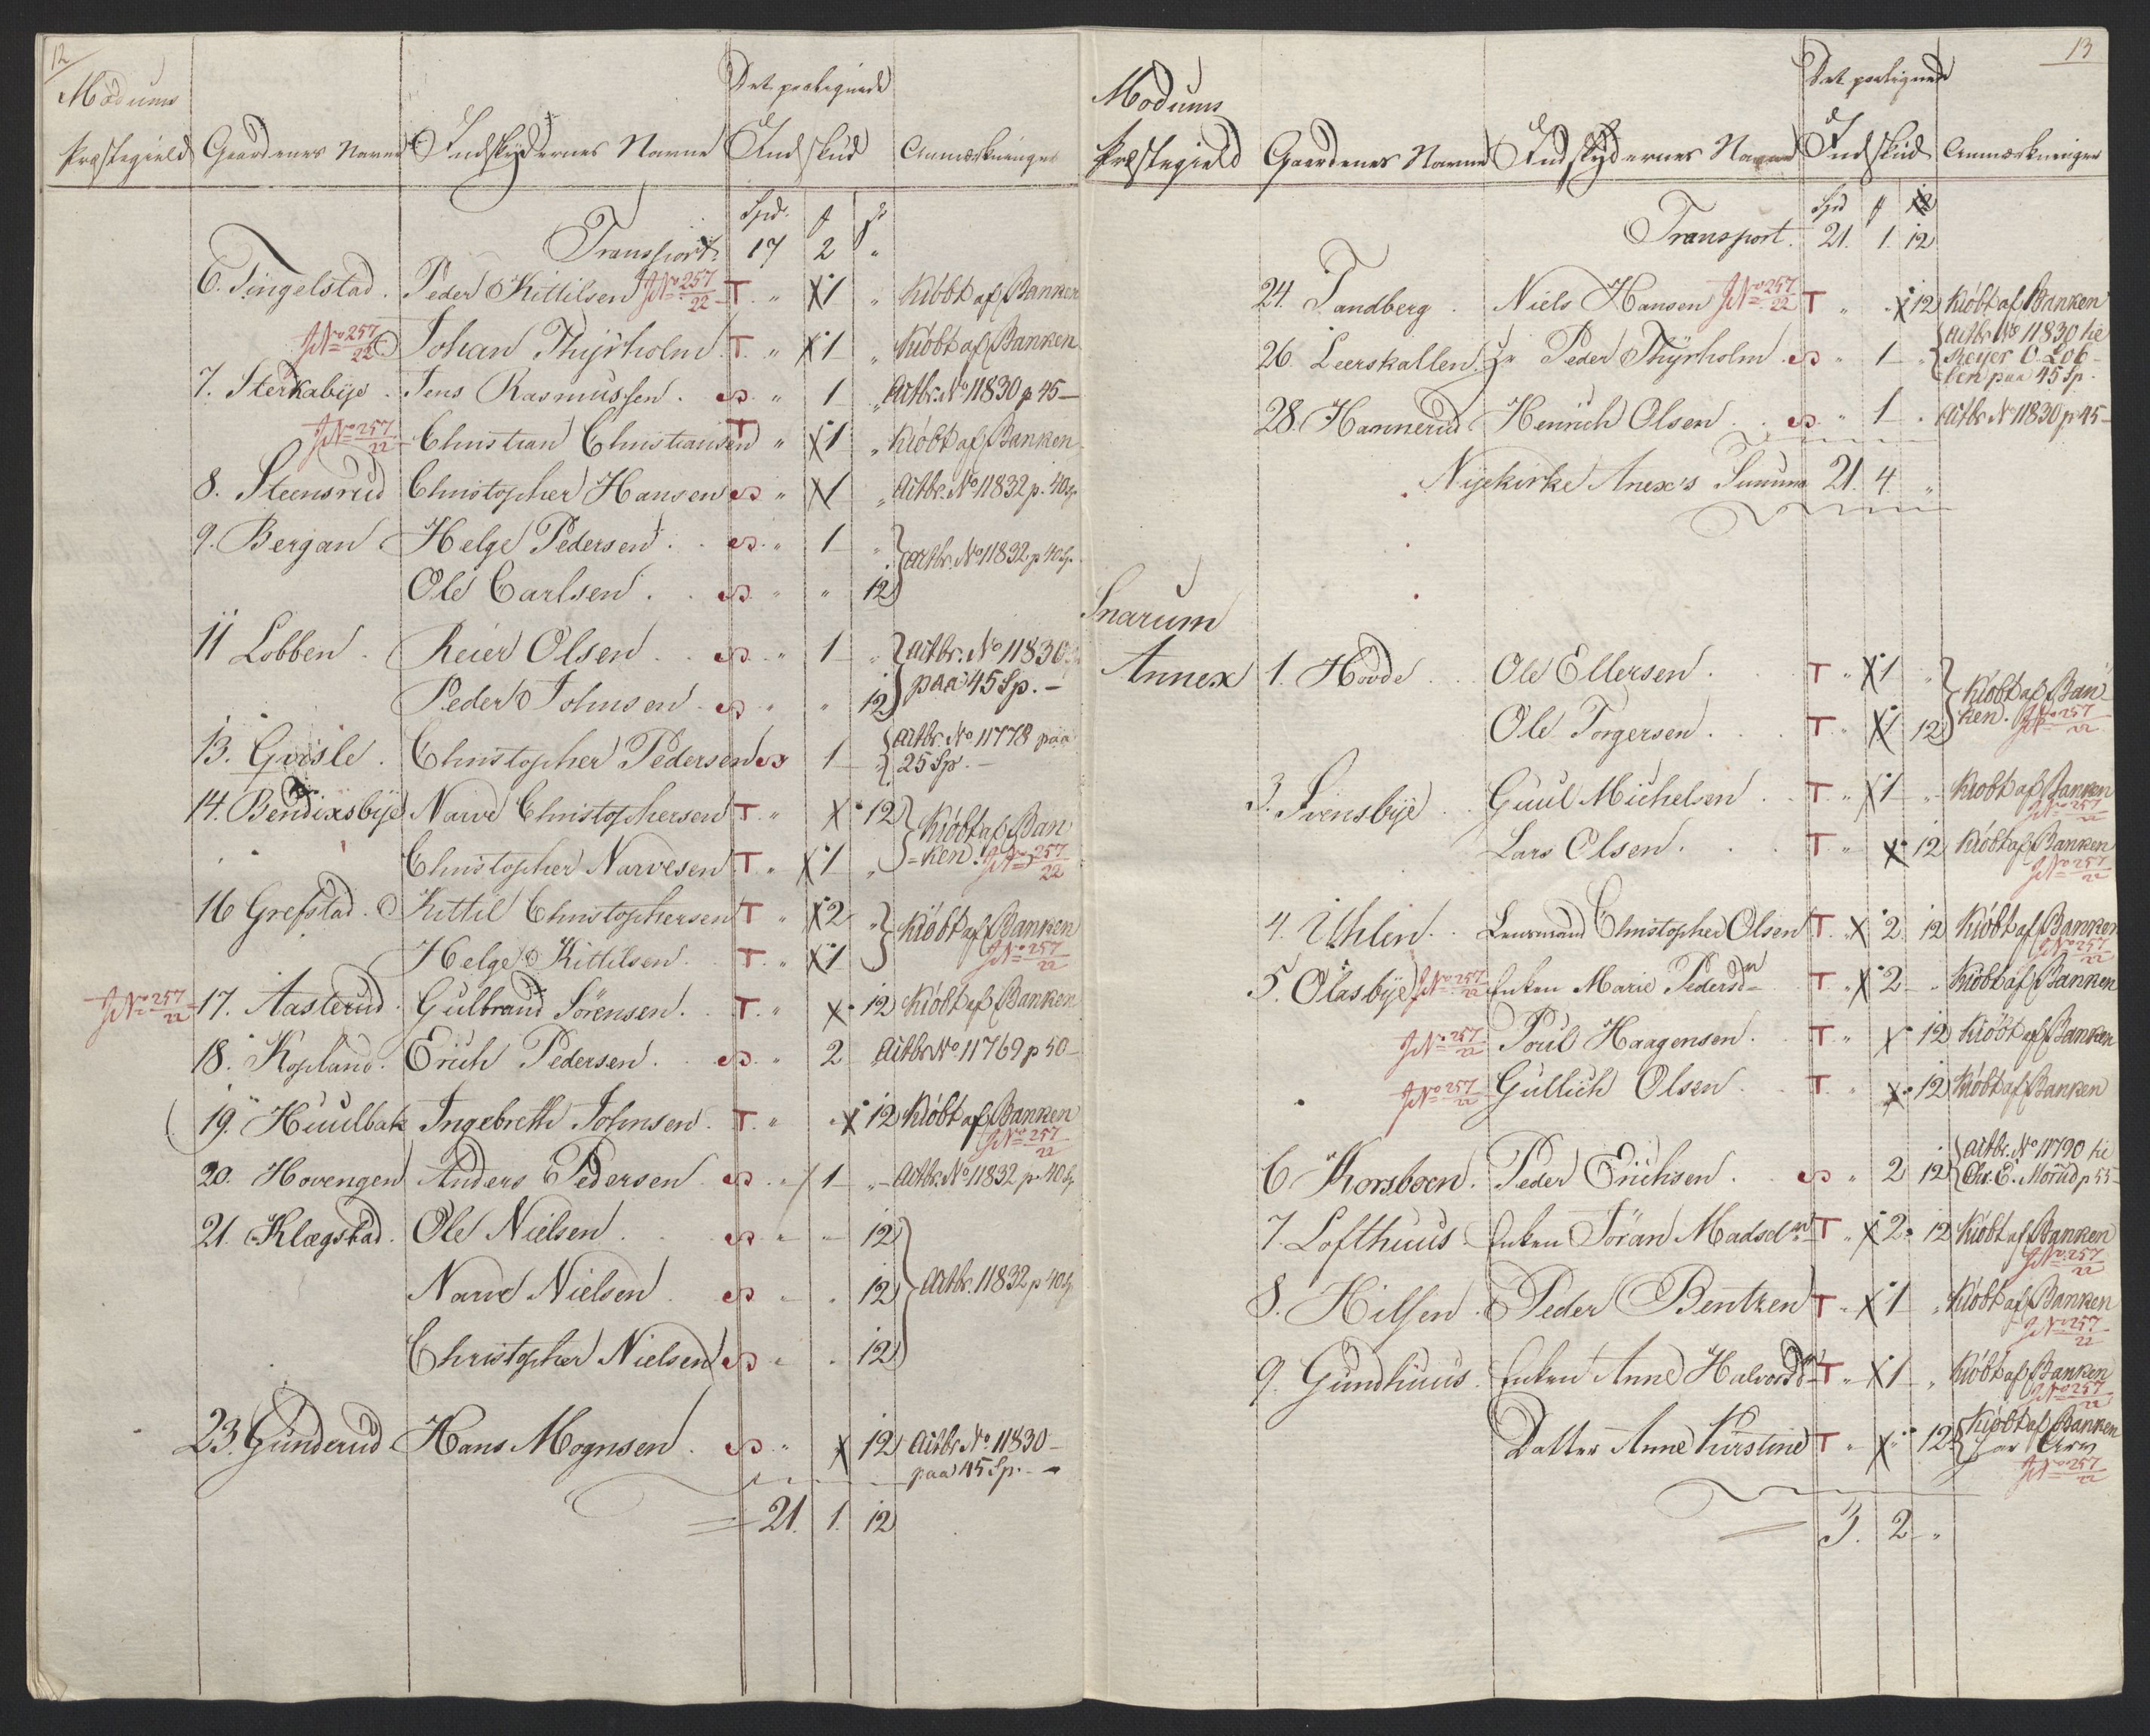 12
Modums
Præstegield Gaardenes Navne Indskÿdernes Navne Det paalignede Indskud Anmærkninger
Spd. ß
Transport 17 2 "
6. Tingelstad. Peder Kittilsen JNo 257/22 T. " X1 " Kiöbt af Banken
JNo 257/22 Johan Thÿrholm. T. " X1 " Kiöbt af Banken
7. Sterkabÿe. Jens Rasmussen. S " 1 " Actbr. No 11830 p 45—
JNo 257/22 Christian Christiansen T " X1 " Kiöbt af Banken
8. Steensrud Christopher Hansen S " X1 " Actbr. No 11832 p. 40 Sp
9. Bergan Helge Pedersen. S " 1 " Actbr. No 11832 p 40 Sp.
Ole Carlsen. S " " 12
11 Lobben. Reier Olsen. S " 1 " Actbr. No 11830
Peder Johnsen S " " 12 paa 45 Sp. —
13. Goosle. Christopher Pedersen S 1 " Actbr. No 11778 paa
25 Sp. —
14. Bendixsbÿe Narve Christophersen T. " X " 12 Kiöbt af Ban
Christopher Narvesen T. " X1 " =ken. JNo 257/22
16 Grefstad. Kittil Christophersen T " X2 " Kiöbt af Banken
Helge Kittilsen. T. " X1 JNo 257/22
JNo 257/22 17. Aasterud. Gulbrand Sörensen. T. " X " 12 Kiöbt af Banken
18. Kopland. Erich Pedersen. S " 2 Actbr No 11769 p 50—
19. Huulbak Ingebreth Johnsen. T. " X 12 Kiöbt af Banken
JNo 257/22
20. Hovengen Anders Pedersen S " 1 " Actbr. No 11832 p. 40 Sp
21. Klægstad. Ole Nielsen. S " " 12
Narve Nielsen S " " 12 Actbr. 11832 p 40 Sp
Christopher Nielsen S " " 12
23. Gunderud Hans Mognsen. S " X 12 Actbr. No. 11830—
paa 45 Sp. —
21. 1. 12
13
Modums
Præstegield Gaardenes Navne Indskÿdernes Navne Det paalignede Indskud Anmærkninger
Spd ß
Transport. 21. 1. 12
24. Tandberg. Niels Hansen JNo 257/22 T " X 12 Kiöbt af Banken
26. Leerskallen. Peder Thÿrholm. S " 1 " Actbr. No 11830 hie
Reyer O. Lob-
ben paa 45 Sp.
28. Hannerud Henrich Olsen. S " 1 " Actbr. No 11830 p 45—
Nÿekirke Anex's Summa 21. 4. "
Snarum
Annex 1. Hovde. Ole Ellersen. T " X1 " Kiöbt af Ban
Ole Torgersen. T " X1 12 ken. JNo 257/22
3. Svensbÿe. Guul Michelsen T. " X1 " Kiöbt af Banken
JNo 257/22
Lars Olsen. T " X " 12 Kiöbt af Banken
JNo 257/22
4. Uhlen. Lensmand Christopher Olsen T. " X 2 12 Kiöbt af Banken
JNo 257/22
5. Olasbÿe JNo 257/22 Enken Marie Pedersdn T " X 2 " Kiöbt af Banken
JNo 257/22 Poul Haagensen. T. " X " 12 Kiöbt af Banken
JNo 257/22 Gullich Olsen T. " X " 12 Kiöbt af Banken
6 Korsboen. Peder Erichsen. S " 2 12 Actbr. No 11790 hie
Chr. E. Morud p 55—
7. Lofthuus. Enken Jöran Madsdn T " X 2 12 Kiöbt af Banken
JNo 257/22
8. Hilsen. Peder Bentzen T " X 1 " Kiöbt af Banken
JNo 257/22
9. Gundhuus. Enken Anne Halvorsdn T " X1 " Kiöbt af Banken
JNo 257/22
Datter Anne Kirstine T " X " 12 Kiöbt af Banken
JNo 257/22
3. 2 "